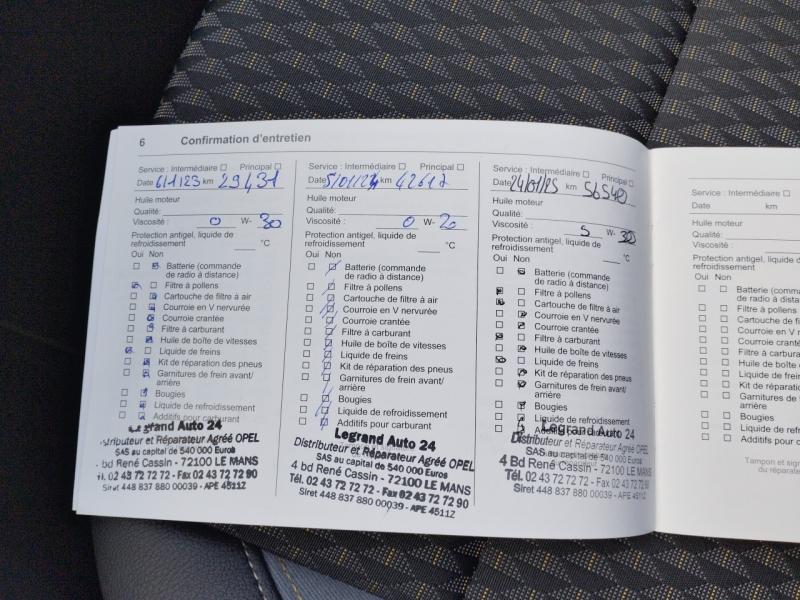 6 Confirmation d'entretien
Service : Intermédiaire □ Principal □
Date 6/1/23 km 29431
Huile moteur
Qualité:
Viscosité : 0 W- 30
Protection antigel, liquide de
refroidissement °C
Oui Non
Batterie (commande
de radio à distance)
Filtre à pollens
Cartouche de filtre à air
Courroie en V nervurée
Courroie crantée
Filtre à carburant
Huile de boîte de vitesses
Liquide de freins
Kit de réparation des pneus
Garnitures de frein avant/
arrière
Bougies
Liquide de refroidissement
Additifs pour carburant
Legrand Auto 24
Distributeur et Réparateur Agréé OPEL
SAS au capital de 540 000 Euros
bd René Cassin - 72100 LE MANS
Tél. 02 43 72 72 72 - Fax 02 43 72 72 90
Siret 448 837 880 00039 - APE 4511Z
Service : Intermédiaire □ Principal □
Date 5/01/24 km 42617
Huile moteur
Qualité:
Viscosité : 0 W- 20
Protection antigel, liquide de
refroidissement °C
Oui Non
Batterie (commande
de radio à distance)
Filtre à pollens
Cartouche de filtre à air
Courroie en V nervurée
Courroie crantée
Filtre à carburant
Huile de boîte de vitesses
Liquide de freins
Kit de réparation des pneus
Garnitures de frein avant/
arrière
Bougies
Liquide de refroidissement
Additifs pour carburant
Legrand Auto 24
Distributeur et Réparateur Agréé OPEL
SAS au capital de 540 000 Euros
4 bd René Cassin - 72100 LE MANS
Tél. 02 43 72 72 72 - Fax 02 43 72 72 90
Siret 448 837 880 00039 - APE 4511Z
Service : Intermédiaire □ Principal □
Date 24/01/25 km 56540
Huile moteur
Qualité:
Viscosité : 5 W- 30
Protection antigel, liquide de
refroidissement °C
Oui Non
Batterie (commande
de radio à distance)
Filtre à pollens
Cartouche de filtre à air
Courroie en V nervurée
Courroie crantée
Filtre à carburant
Huile de boîte de vitesses
Liquide de freins
Kit de réparation des pneus
Garnitures de frein avant/
arrière
Bougies
Liquide de refroidissement
Legrand Auto 24
Distributeur et Réparateur Agréé OPEL
SAS au capital de 540 000 Euros
4 Bd René Cassin - 72100 LE MANS
Tél. 02 43 72 72 72 - Fax 02 43 72 72 90
Siret 448 837 880 00039 - APE 4511Z
Service : Intermédiaire □
Date km
Huile moteur
Qualité:
Viscosité :
Protection antigel, liquide
refroidissement
Oui Non
Batterie (comma
de radio à dista
Filtre à pollens
Cartouche de filt
Courroie en V ne
Courroie cranté
Filtre à carbura
Huile de boîte
Liquide de frein
Kit de réparatio
Garnitures de f
arrière
Bougies
Liquide de refr
Additifs pour c
Tampon et sign
du répara